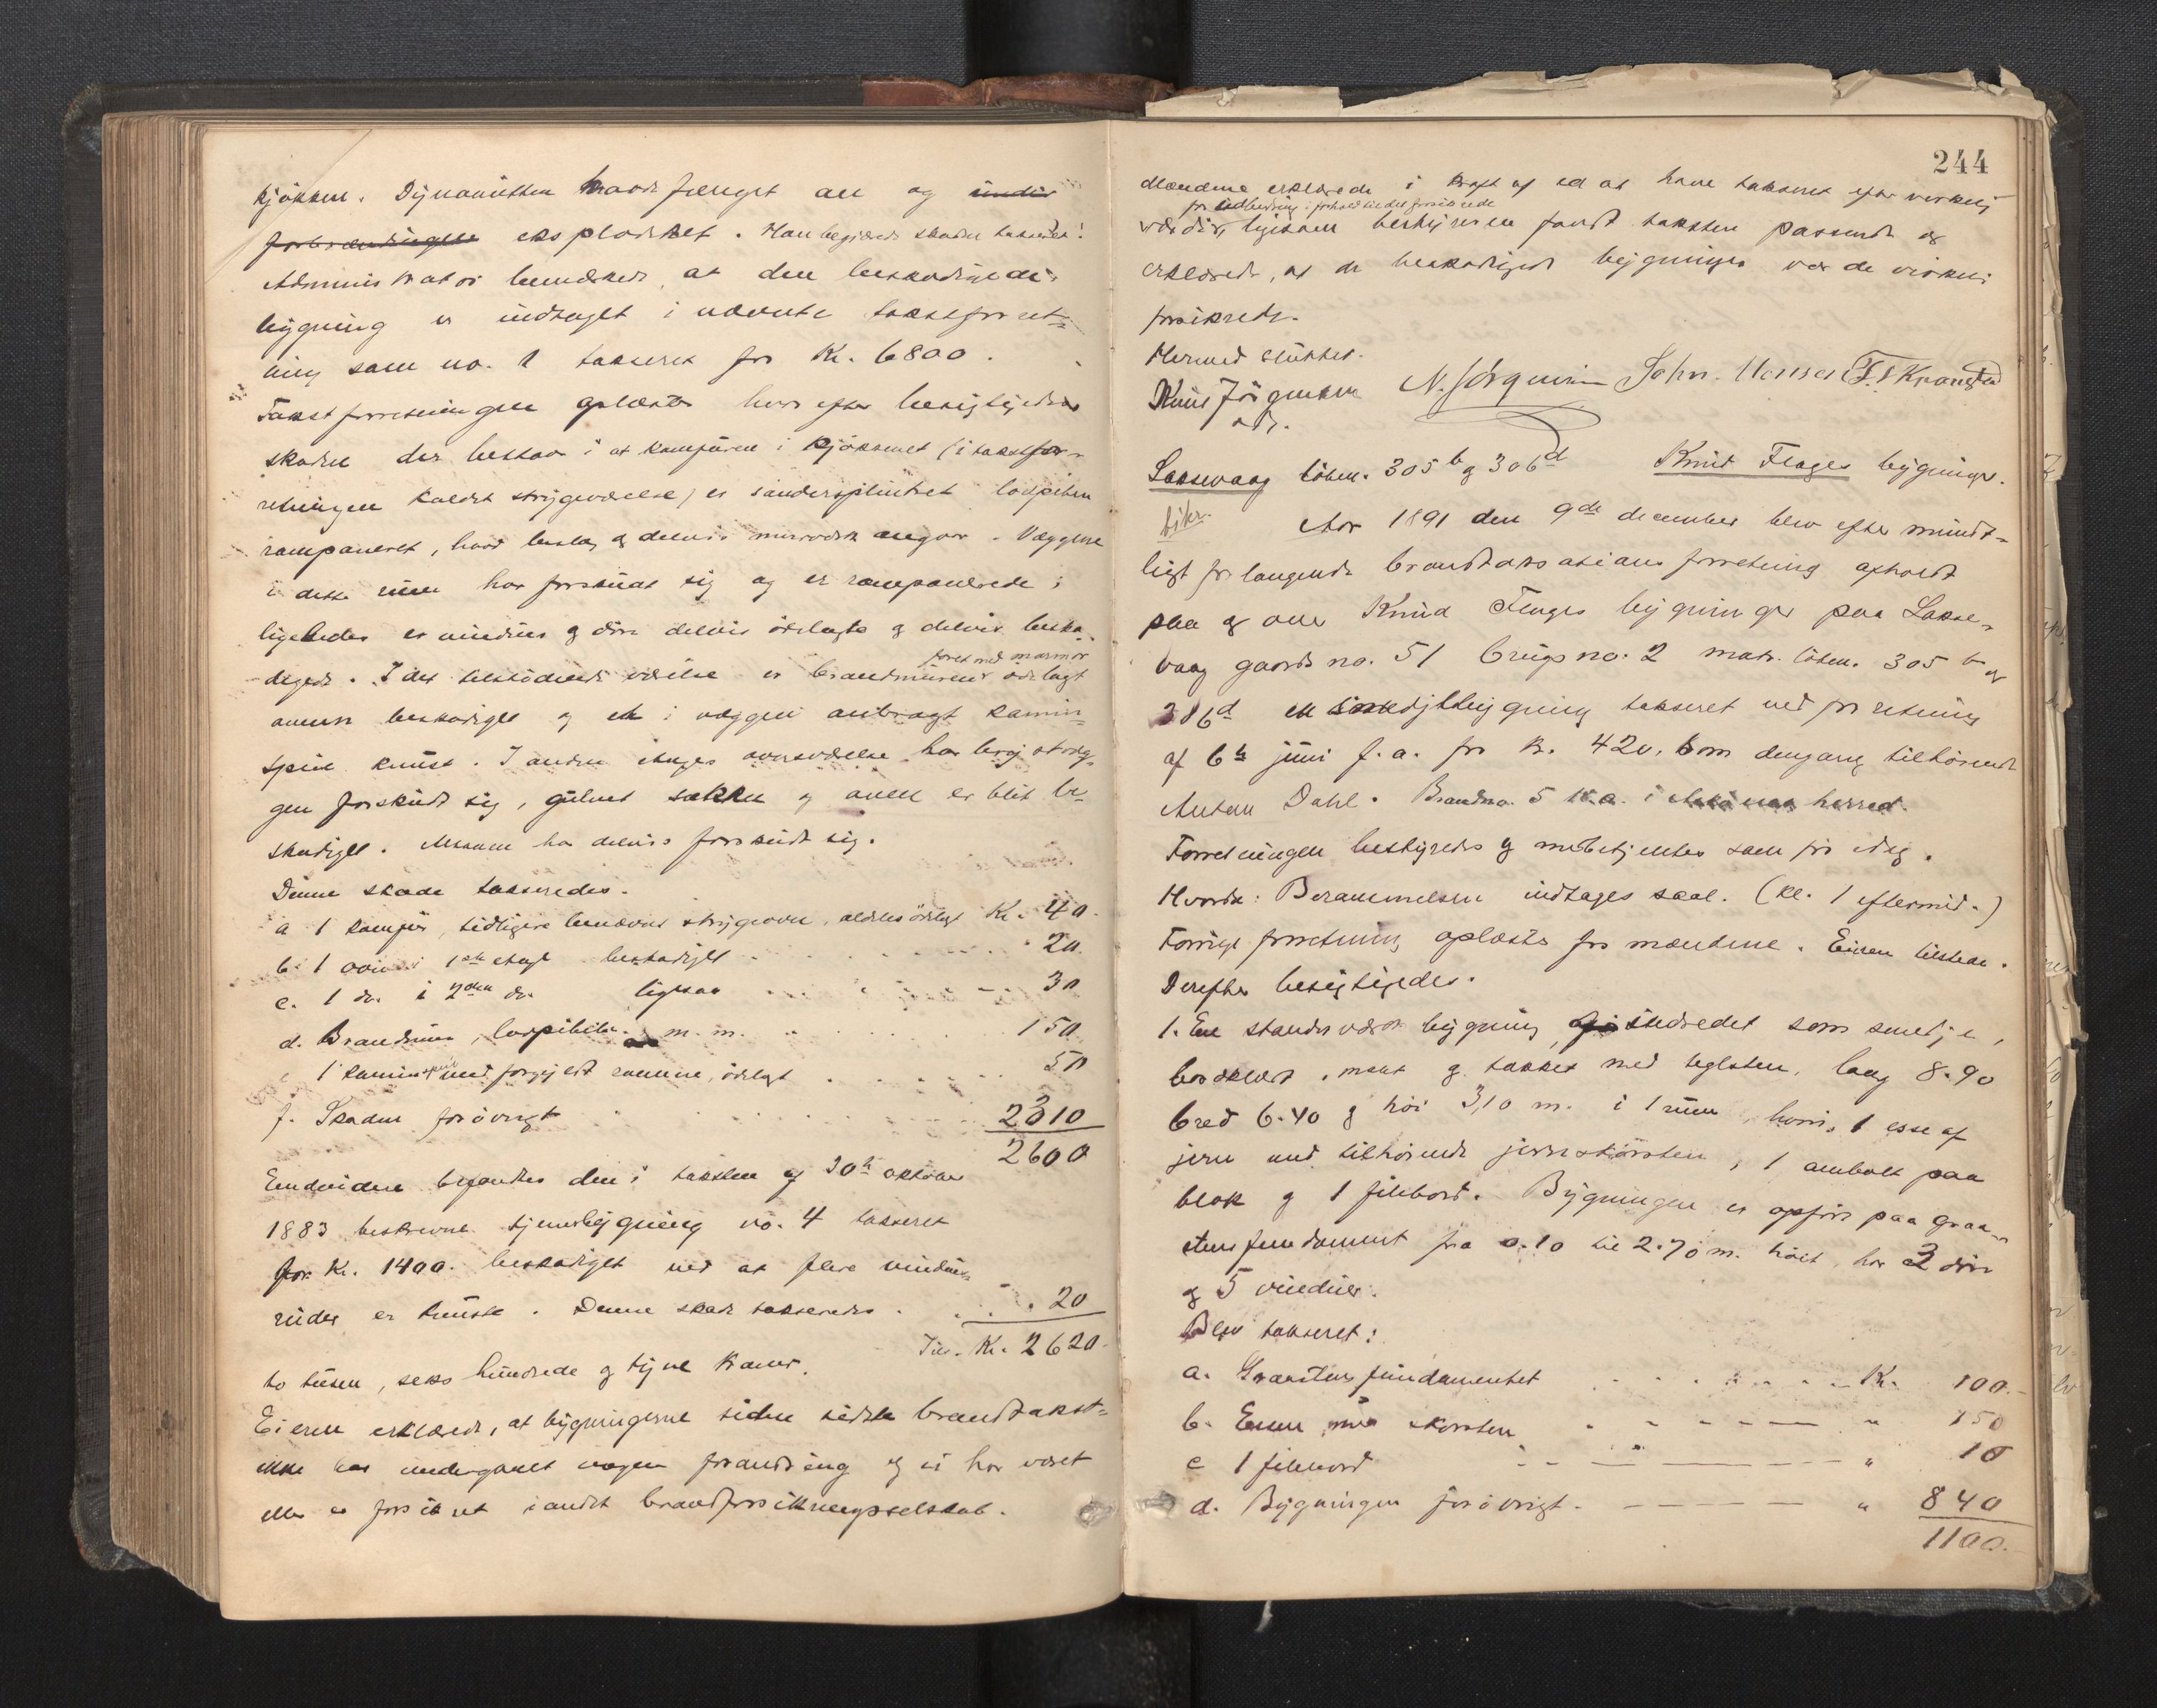 kjøkken. Dynamitten havde fænget an og under
forbrændingen eksploderet. Han begjærede skaden takseret.
Administrator bemerkede, at den beskadigede
bygning er indtaget i nævnte takstforret-
ning som no. 1 takseret for Kr. 6800.
Takstforretningen oplæstes hvorefter besigtigedes
skaden der bestaar i at komfuren i kjøkkenet (i takstfor-
retningen kaldet strygeværelse) er søndersplintret
ramponeret, hvad beslag og delvis murværk angaar. Væggene
i dette rum har forskudt sig og er ramponerede;
ligeledes er vinduer og døre delvis ødelagte og delvis beska-
foret med marmor
digede. I det tilstødende værelse er brandmuren ødelagt
ovnen beskadiget og et i væggen anbragt kamin-
speil knust. I anden etages
gen forskudt sig, gulvet sokken og ovnen er blit be-
skadiget. Muren har delvis forskudt sig.
Denne skade takseredes.
a 1 komfur, tidligere benævnt strygeovn, aldeles ødelagt Kr. 40.
b. 1 ovn i 1ste etage beskadiget 20.
c. 1 do. i 2den do. ligesaa 30
d. Brandmur, m. m. 150
e 1 kaminspeil med forgyldt ramme, ødelagt 50
f. Skaden forøvrigt 2310
2600
Endvidere befandtes den i taksten af 30te oktober
1883 beskrevne bygning no. 4 takseret
for Kr. 1400. beskadiget ved at flere vindus-
ruder er knuste. Denne skade takseredes 20
Tils. Kr. 2620.
to tusen, seks hundrede og tyve kroner.
Eieren erklærede, at bygningerne siden sidste brandtakst
ikke har undergaaet nogen forandring og ei har været
eller er forsikret i andet brandforsikringsselskab.
244
Mændene erklærede i kraft af ed at have takseret efter virkelig
for udbedring i forhold til det forsikrede
værdier, ligesom bestyreren fandt taksten passende og
erklærede, at de beskadigede bygninger var de virkelig
forsikrede.
Hermed sluttet.
Knud Jørgensen N. Jørgensen John. Monsen F. Kronstad
adr.
Laksevaag løben. 305 b og 306 d Knud Flages bygninger.
Aar 1891 den 9de december blev efter mundt-
ligt forlangende brandtaksations forretning afholdt
paa og over Knud Flages bygninger paa Lakse-
vaag gaards no. 51 brugs no. 2 matr. løben. 305 b og
306 d en smedjebygning takseret ved forretning
af 6te juni f. a. for Kr. 420, som dengang tilhørende
Anton Dahl. Brandno. 5 K.a. i Askøens herred.
Forretningen bestyredes og medbetjentes som før idag.
Hvorda: Berammelsen indtages saal. (kl. 1 eftermid.)
Forrige forretning oplæstes for mændene. Eieren tilstede.
Derefter besigtigedes.
1. En standsværks bygning, indredet som smedje,
bordklædt, malt og takket med teglsten, lang 8.90
bred 6.40 og høi 3,10 m. i 1 rum, hvori, 1 esse af
jern med tilhørende jernskorsten, 1 ambolt paa
blok og 1 filebord. Bygningen er opført paa graa-
stens fundament fra 0.10 til 2.70 m. høit, har 2 døre
og 5 vinduer.
Blev takseret:
a. Graastensfundamentet Kr. 100.-
b. Essen med skorsten " 150
c 1 filebord " 10
d. Bygningen forøvrigt. " 840
1100.